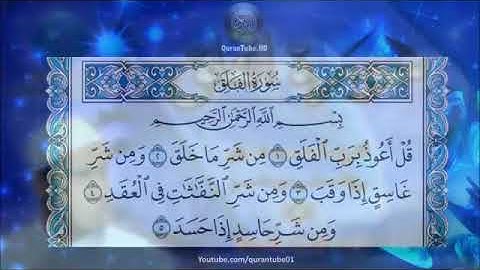 QuranTube.HD
سُورَةُ الفَلَقِ
بِسْمِ اللَّهِ الرَّحْمَٰنِ الرَّحِيمِ
قُلْ أَعُوذُ بِرَبِّ الْفَلَقِ ١ مِن شَرِّ مَا خَلَقَ ٢ وَمِن شَرِّ
غَاسِقٍ إِذَا وَقَبَ ٣ وَمِن شَرِّ النَّفَّاثَاتِ فِي الْعُقَدِ ٤
وَمِن شَرِّ حَاسِدٍ إِذَا حَسَدَ ٥
Youtube.com/qurantube01